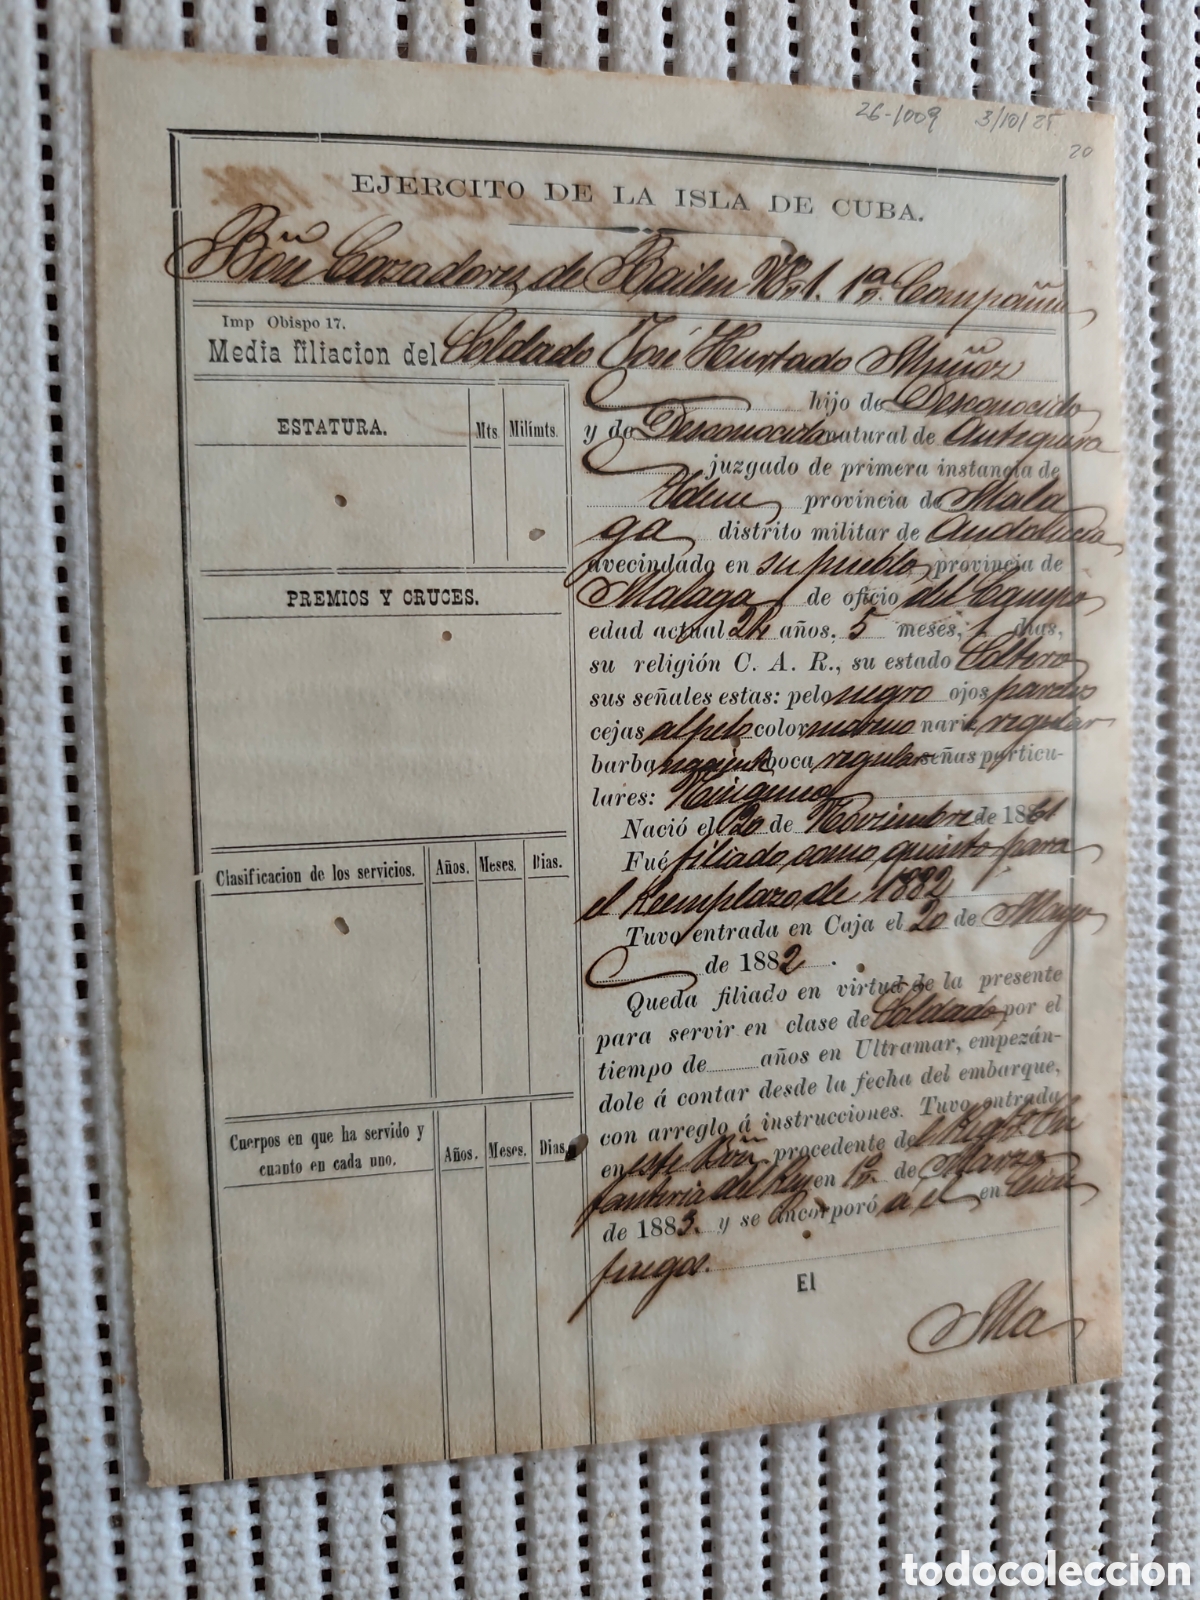 26-1009 3/10/25
20
EJERCITO DE LA ISLA DE CUBA.
Bon Cazadores de Bailen No 1. 1a Compañia
Imp Obispo 17.
Media filiacion del Soldado José Hurtado Muñoz
ESTATURA. Mts Milímts.
PREMIOS Y CRUCES.
Clasificacion de los servicios. Años. Meses. Dias.
Cuerpos en que ha servido y cuanto en cada uno. Años. Meses. Dias.
hijo de Desconocido
y de Desconocida natural de Antequera
juzgado de primera instancia de
Idem provincia de Mala
ga distrito militar de Andalucia
avecindado en su pueblo provincia de
Malaga de oficio del Campo
edad actual 24 años, 5 meses, 1 dias,
su religión C. A. R., su estado Soltero
sus señales estas: pelo negro ojos pardos
cejas al pelo color moreno nariz regular
barba boca regular señas particu-
lares: Ninguna
Nació el 20 de Noviembre de 1861
Fué filiado como quinto para
el Reemplazo de 1882
Tuvo entrada en Caja el 20 de Mayo
de 1882.
Queda filiado en virtud de la presente
para servir en clase de Soldado por el
tiempo de años en Ultramar, empezán-
dole á contar desde la fecha del embarque,
con arreglo á instrucciones. Tuvo entrada
en este Bon procedente del Regto In
fanteria del Rey en 1o de Marzo
de 1883. y se incorporó a el en Cien
fuegos.
El
Ma
todocoleccion